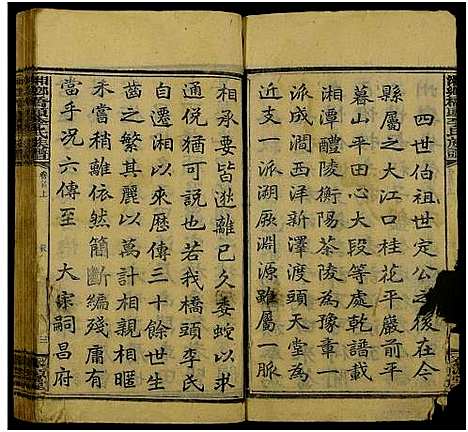 四世伯祖世定公之後在今
縣屬之大江口桂花平嚴前平
暮山平田心大段等處乾譜
湘潭醴陵衡陽茶陵為豫章一
派成江澗西洋新澤渡大堂
近支一派溯厥淵源雖屬一脈
相承要皆逖離已久委蛇以求
通悦猶可説也若我橋頭李氏
自遷湘以來歷傳三十餘世生
齒之繁其麗以萬計相親相暱
未嘗稍離間然簡斷編殘庸有
當乎况六傳至　大宗嗣昌府
卷首上